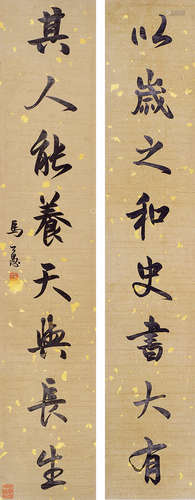 以歲之和史書大有
其人能養天與長生
馬公愚